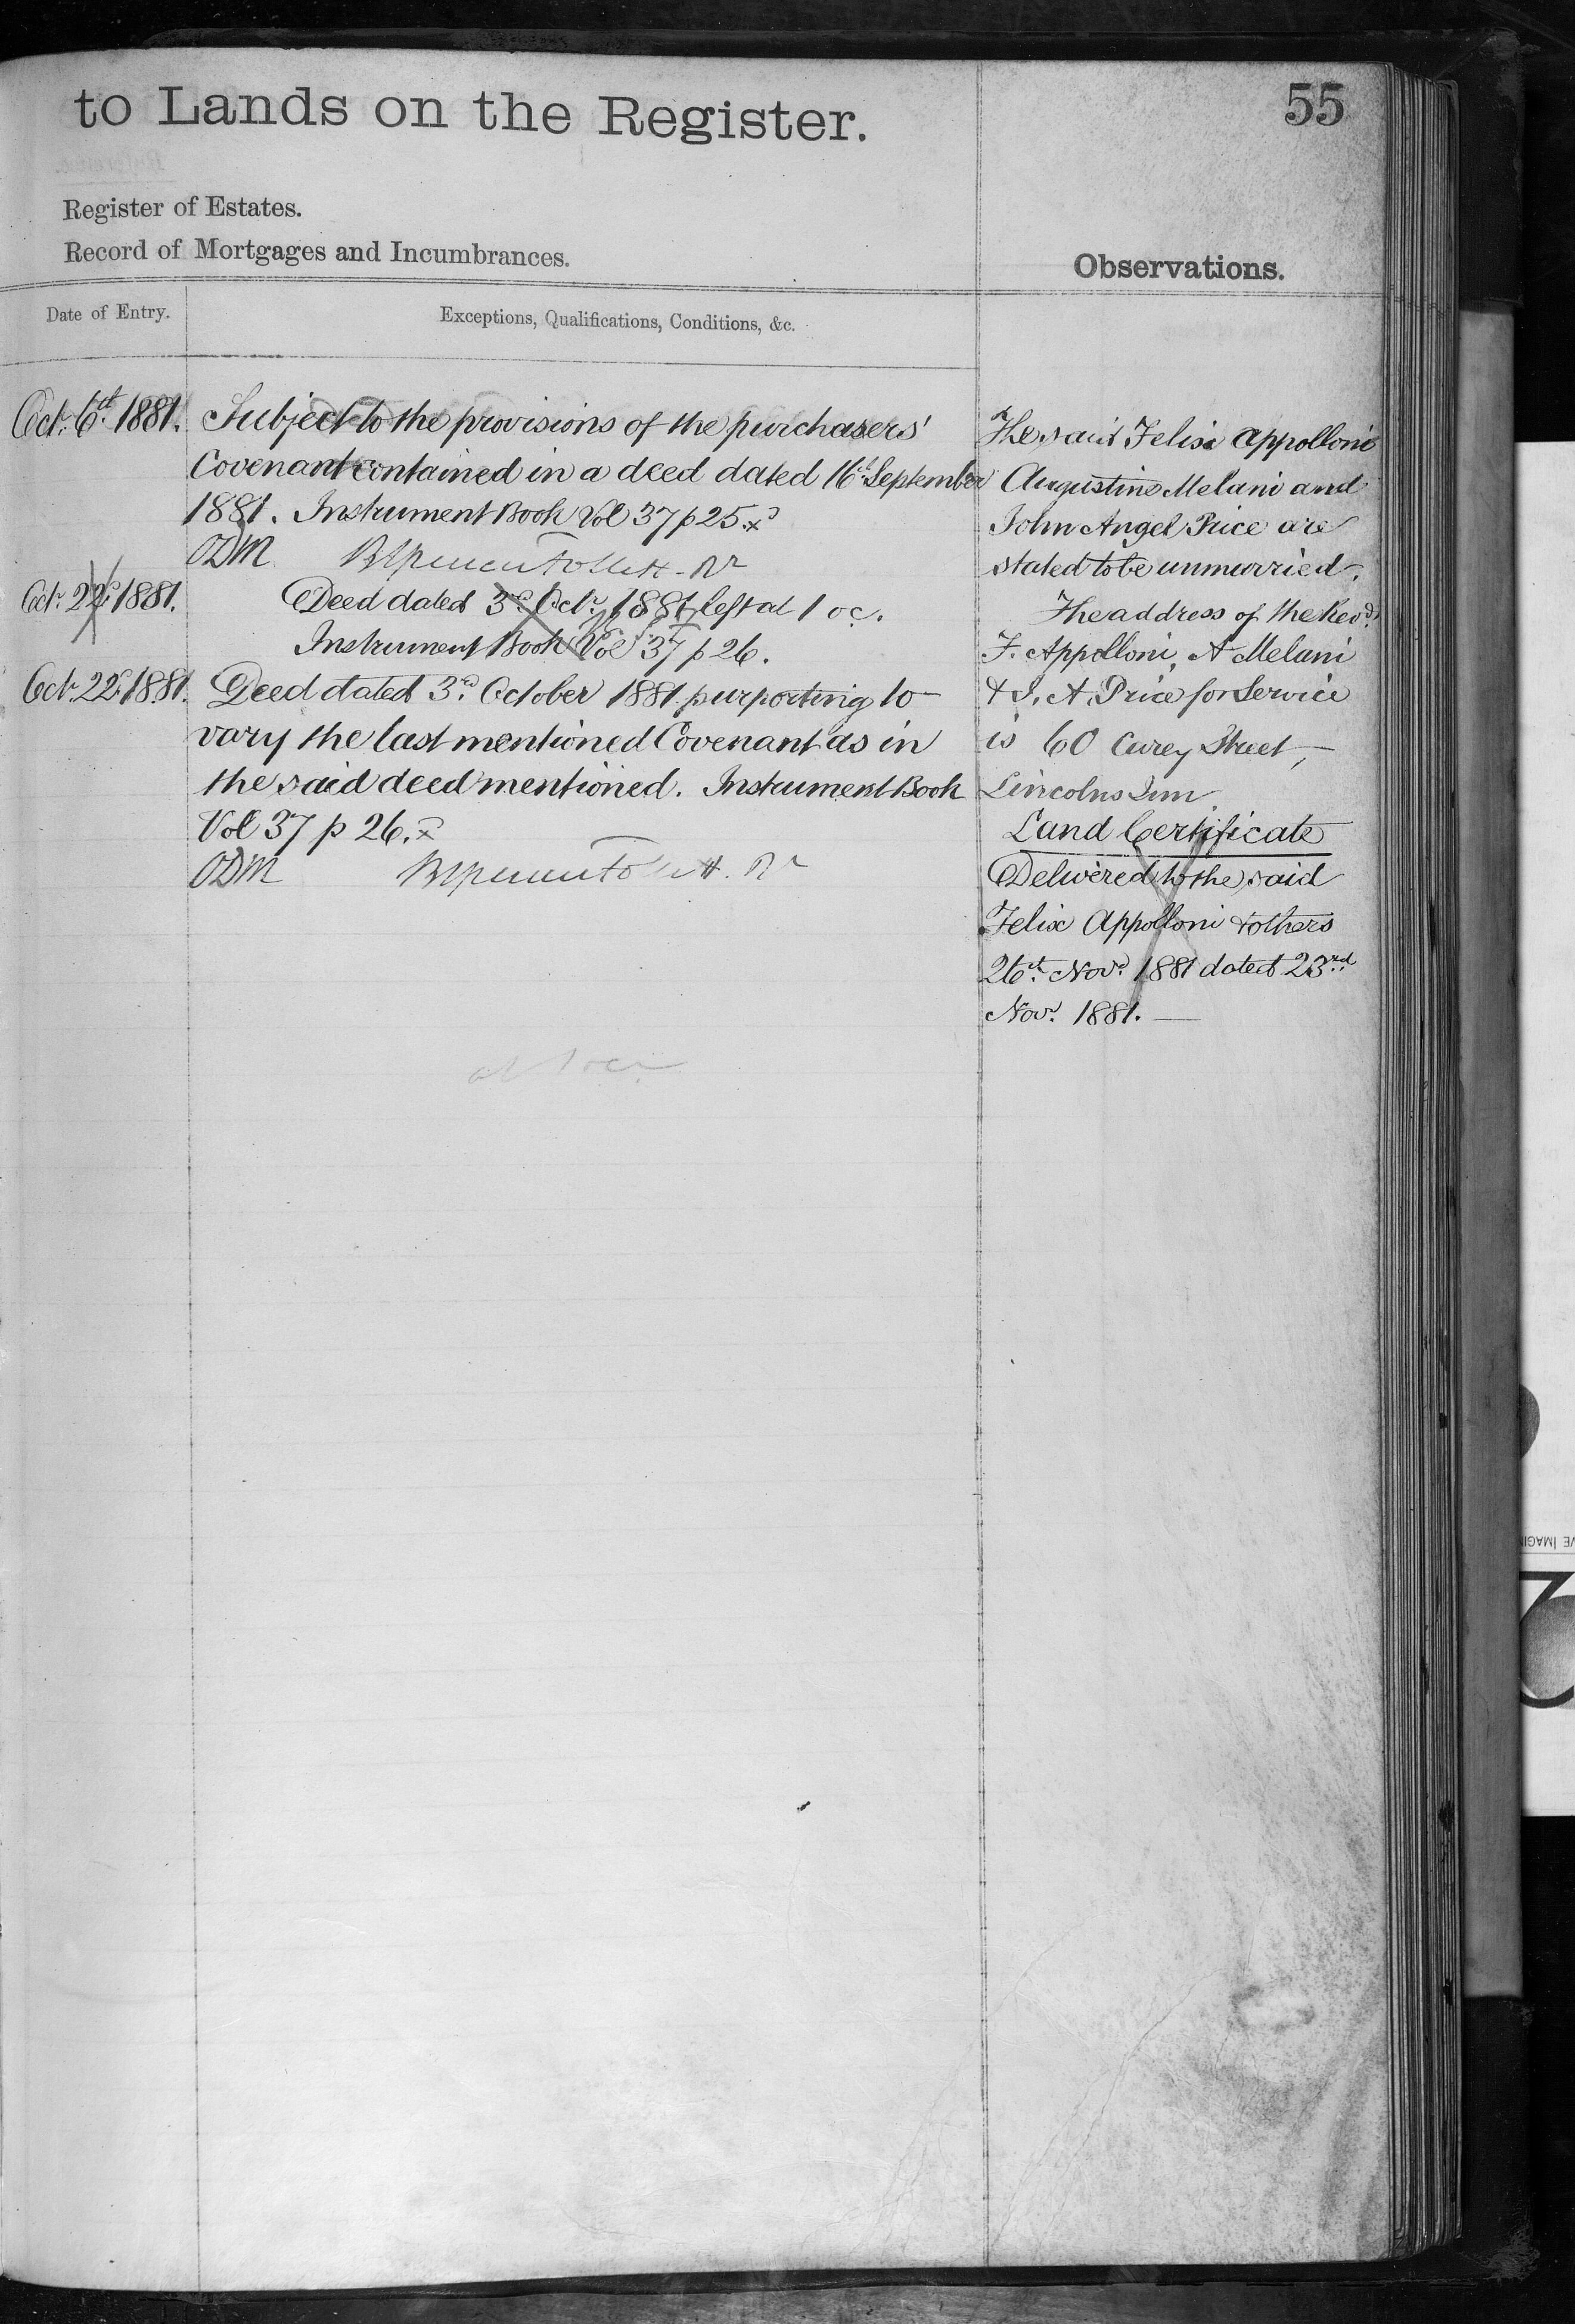 to Lands on the Register.
55
Register of Estates.
Record of Mortgages and Incumbrances.
Observations.
Date of Entry.
Exceptions, Qualifications, Conditions, &c.
Oct. 6th 1881.
Subject to the provisions of the purchasers'
Covenant contained in a deed dated 16th September
1881. Instrument Book Vol 37 p 25.
ODM
Octr. 22d 1881.
Deed dated 3rd Octr. 1881 left at 1 oc.
Instrument Book Vol 37 p 26.
Octr. 22d 1881.
Deed dated 3rd October 1881 purporting to
vary the last mentioned Covenant as in
the said deed mentioned. Instrument Book
Vol 37 p 26.
ODM
The said Felix Appolloni
Augustine Melani and
John Angel Price are
stated to be unmarried.
The address of the Revd.
F. Appolloni, A Melani
& J. A. Price for Service
is 60 Carey Street,
Lincolns Inn
Land Certificate
Delivered to the said
Felix Appolloni & others
26th Novr. 1881 dated 23rd
Novr. 1881.